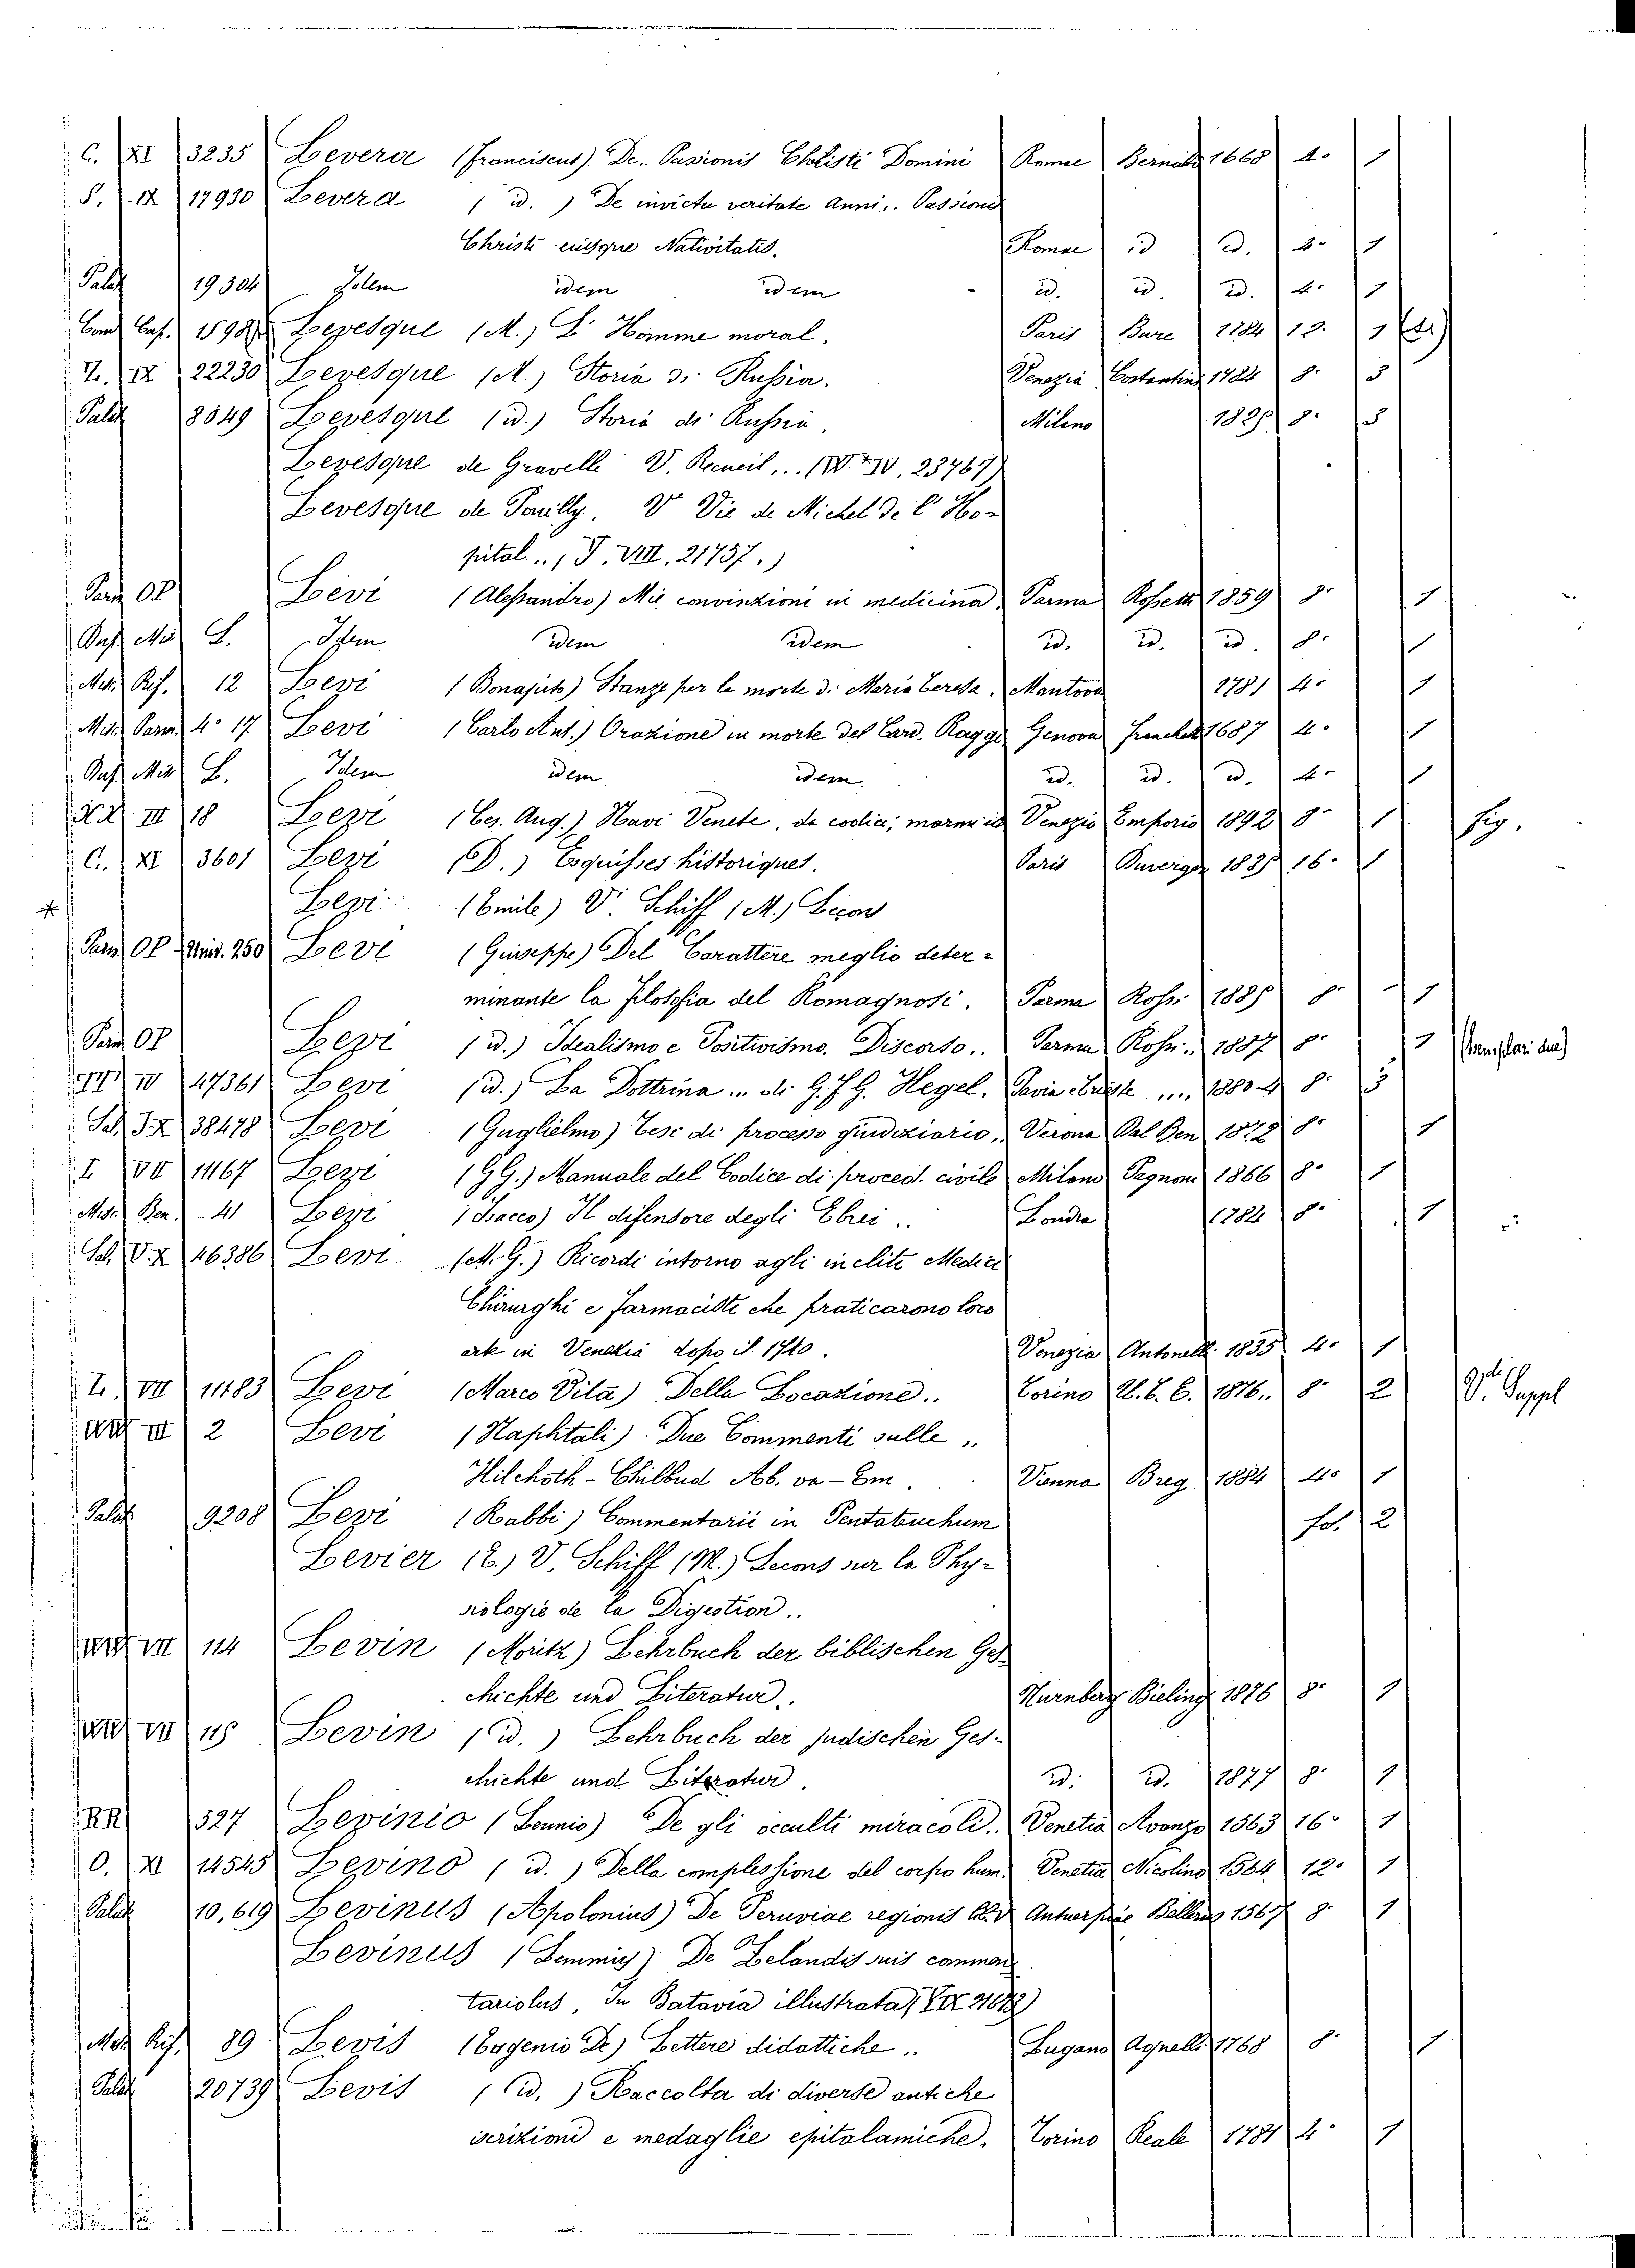 C. XI 3235 Levera (Franciscus) De. Passionis Christi Domini Romae Bernabò 1668 4° 1
S. IX 17930 Levera ( id. ) De invicta veritate Anni... Passionis
Christi eiusque Nativitatis. Romae id id. 4° 1
Palat 19304 Idem idem idem id. id. id. 4° 1
Caps. 1598 Levesque (M.) L'Homme moral. Paris Bure 1784 12° 1
IX 22230 Levesque (M.) Storia di Russia. Venezia Costantini 1784 8° 5
Palat 8349 Levesque (id.) Storia di Russia. Milano 8° 5
Levesque de Gravelle V. Recueil... IV. 23767)
Levesque de Pouilly. V. Vie de Michel de l'Ho-
pital.. ( VIII. 21757.)
Parm OP Levi (Alessandro) Mie convinzioni in medicina Parma Rossetti 1859 8° 1
L. Idem idem idem id. id. id. 8° 1
12 Levi (Bonajuto) Stanze per la morte di Maria Teresa. Mantova 1781 4° 1
Parm. 4° 17 Levi (Carlo Ant.) Orazione in morte del Card. Raggi Genova 1687 4° 1
L. Idem idem idem id. id. id. 4° 1
III 18 Levi (Ces. Aug.) Navi Venete, da codici, marmi Venezia Emporio 1892 8° 1 fig.
C. XI 3601 Levi (D.) Esquisses historiques. Paris Duverger 16° 1
* Levi (Emile) V. Schiff (M.) Leçons
Parm OP 250 Levi (Guiseppe) Del Carattere meglio deter-
minante la filosofia del Romagnosi. Parma Ross. 8° 1
Parm OP Levi (id.) Idealismo e Positivismo. Discorso.. Parma Ross. 1887 8° 1 (Esemplari due)
IV 47361 Levi (id.) La Dottrina... di G. F. G. Hegel. Pavia 8° 3
Sch. IX 38478 Levi (Guglielmo) Tesi di processo giudiziario. Verona Dal Ben 8° 1
I VII 11167 Levi (G G.) Manuale del Codice di proced. civile Milano Pagnoni 1866 8° 1
Mss. Ben. 41 Levi (Isacco) Il difensore degli Ebrei.. Londra 1784 8° 1
Sch. V. X 46386 Levi (M. G.) Ricordi intorno agli incliti Medici
Chirurghi e farmacisti che praticarono loro
arte in Venezia dopo il 1740. Venezia Antonelli 1835 4° 1
VII 11483 Levi (Marco Vita) Della Locazione.. Torino U. T. E. 1876.. 8° 2 V. Suppl
III 2 Levi (Naphtali). Due Commenti sulle..
Hilchoth - Chilbud Ab. va - Em. Vienna Breg 1884 4° 1
Palat 9208 Levi (Rabbi) Commentarii in Pentateuchum fo. 2
Levier (E.) V. Schiff (M.) Lecons sur la Phy-
siologie de la Digestion..
VII 114 Levin (Moritz) Lehrbuch der biblischen Ges-
chichte und Literatur. Nurnberg Bieling 1876 8° 1
VII 115 Levin (id.) Lehrbuch der judischen Ges-
chichte und Literatur. id. id. 1877 8° 1
RR 327 Levinio (Lennio) De gli occulti miracoli.. Venetia Avanzo 1563 16° 1
O. XI 14545 Levino ( id. ) Della complessione del corpo hum. Venetia Nicolino 1564 12° 1
Palat 10,619 Levinus (Apolonius) De Peruviae regionis Antuerpiae Bellerus 1567 8° 1
Levinus (Lemmius) De Zelandis suis commen
tariolus, In Batavia illustrata (
89 Levis (Eugenio De) Lettere didattiche.. Lugano Agnelli 1768 8° 1
Palat 20739 Levis ( id. ) Raccolta di diverse antiche
iscrizioni e medaglie epitalamiche. Torino Reale 1781 4° 1